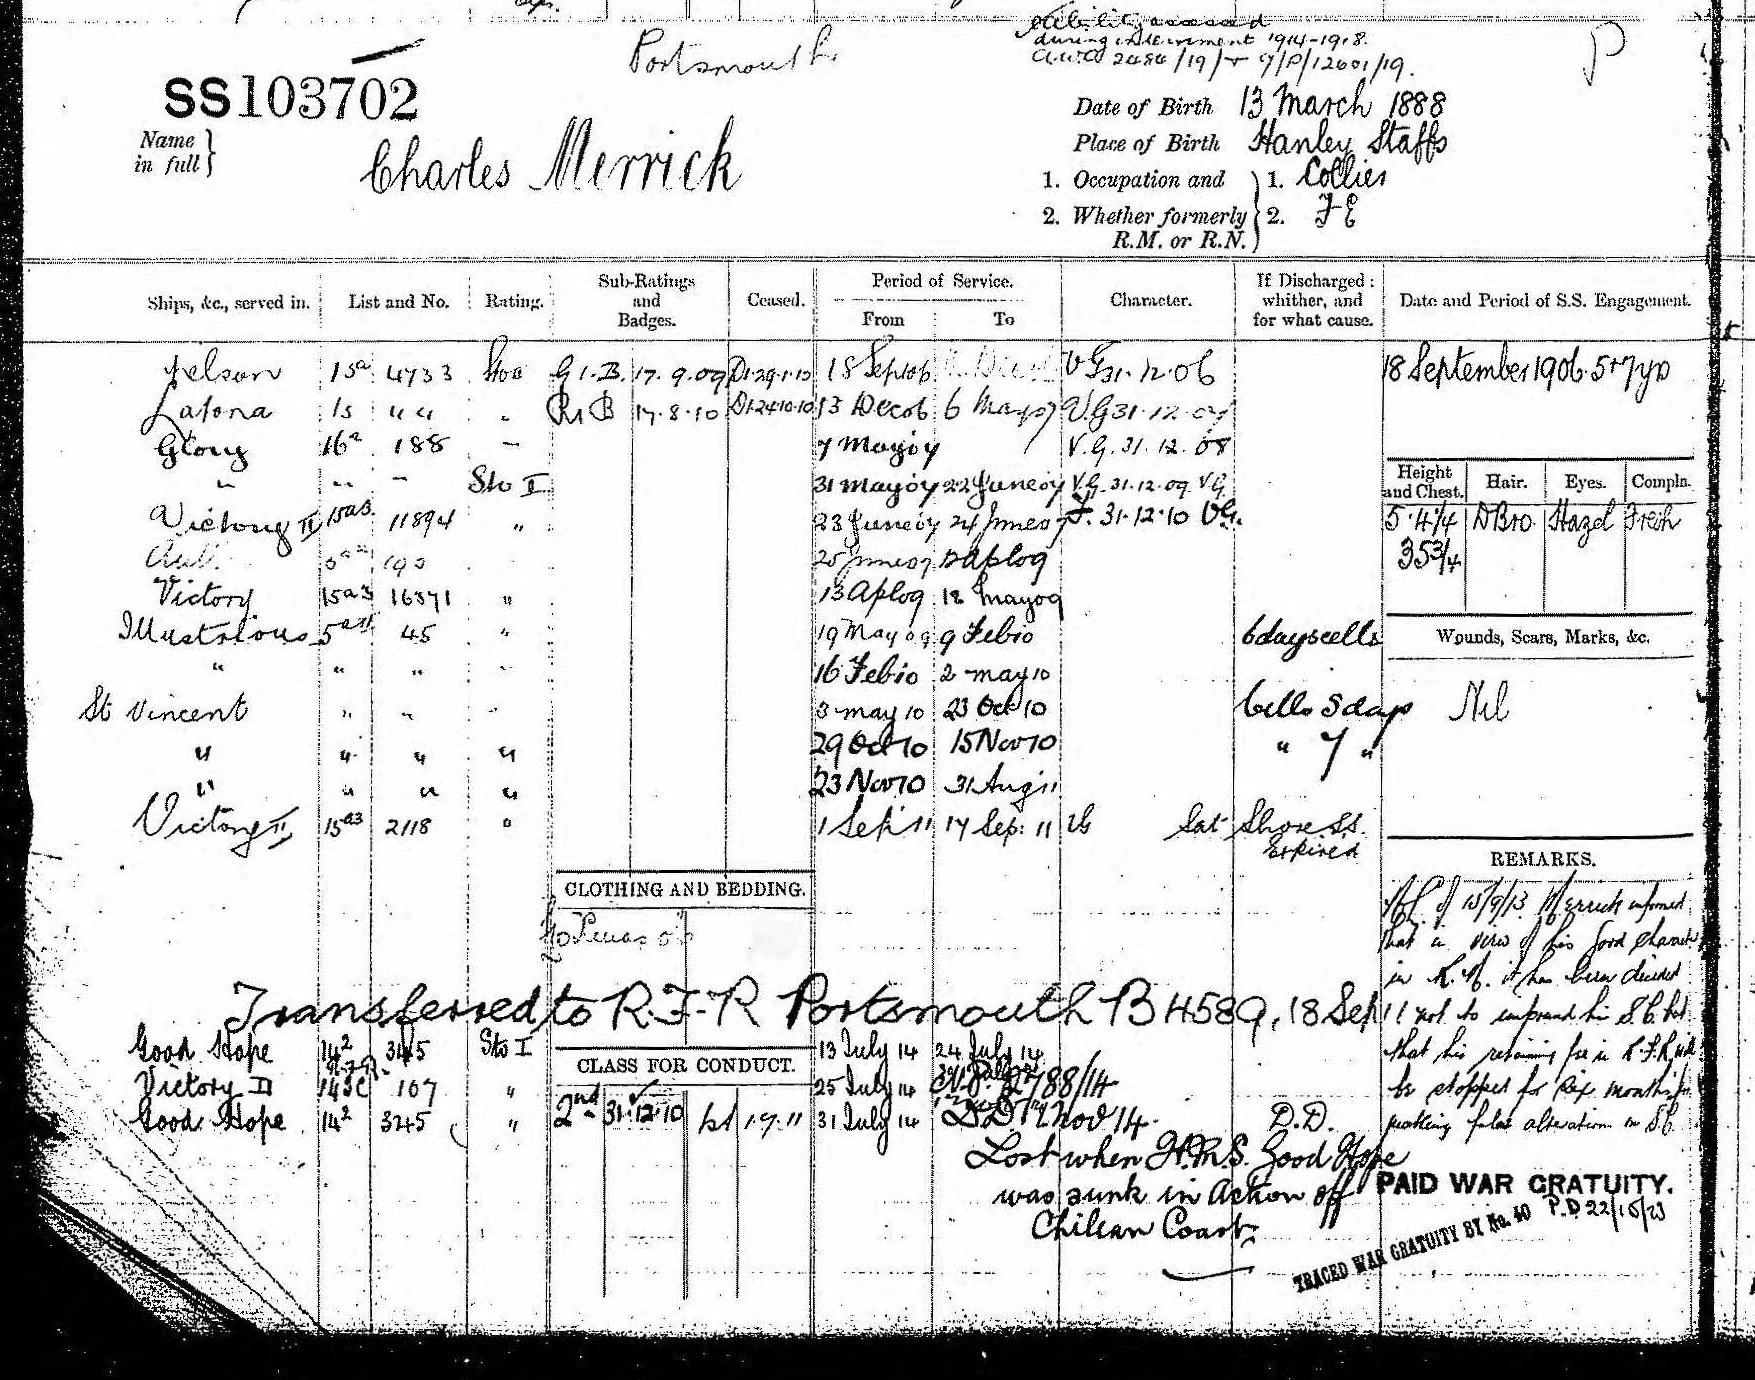 during internment 1914-1918.
2486/19 + 9/P/12601/19.
Portsmouth
P
SS103702
Name in full
Charles Merrick
Date of Birth 13 March 1888
Place of Birth Hanley Staffs
1. Occupation and 1. Collier
2. Whether formerly R.M. or R.N. 2.
Ships, &c., served in. List and No. Rating. Sub-Ratings and Badges. Ceased. Period of Service. From To Character. If Discharged: whither, and for what cause. Date and Period of S.S. Engagement.
Nelson 15a 4733 Sto 2 G1.B. 17.9.09 D1.29.1.10 18 Sept 06 VG 31.12.06 18 September 1906. 5+7 yrs
Latona 15 " " " R1B 17.8.10 D1.24.10.10 13 Dec 06 6 May 07 V.G 31.12.07
Glory 16a 188 - 7 May 07 V.G. 31.12.08
" " - Sto I 31 May 07 22 June 07 V.G. 31.12.09 VG
Height and Chest. Hair. Eyes. Compln.
Victory II 15a3 11894 " 23 June 07 24 June 07 F. 31.12.10 VG.
5.4¼ D Bro Hazel Fresh
35¾
25 June 07 12 Ap 09
Victory 15a3 16371 " 13 Ap 09 18 May 09
Illustrious 5a 45 " 19 May 09 9 Feb 10 6 days cells
Wounds, Scars, Marks, &c.
" " " " 16 Feb 10 2 May 10
St Vincent " " " 3 May 10 23 Oct 10 Cells 5 days
Nil
" " " " 29 Oct 10 15 Nov 10 " 7 "
" " " " 23 Nov 10 31 Aug 11
Victory II 15a3 2118 " 1 Sep 11 17 Sep: 11 VG Sat Shore SS. Expired
REMARKS.
CLOTHING AND BEDDING.
15/9/13 Merrick informed
that in view of his good character
in R.N. it has been decided
Transferred to R.F.R Portsmouth B4589, 18 Sep 11
not to impound his S.C. but
that his retaining fee in R.F.R. will
be stopped for six months for
making false alteration on S.C.
Good Hope 14² 3245 Sto I 13 July 14 24 July 14
CLASS FOR CONDUCT.
Victory II 107 " 25 July 14
88/14
Good Hope 14² 3245 " 2nd 31.12.10 1st 1.9.11 31 July 14 DD 1 Nov 14. D.D.
Lost when H.M.S. Good Hope
was sunk in Action off
Chilean Coast.
PAID WAR GRATUITY.
P.D 22/15/23
TRACED WAR GRATUITY BY No. 40